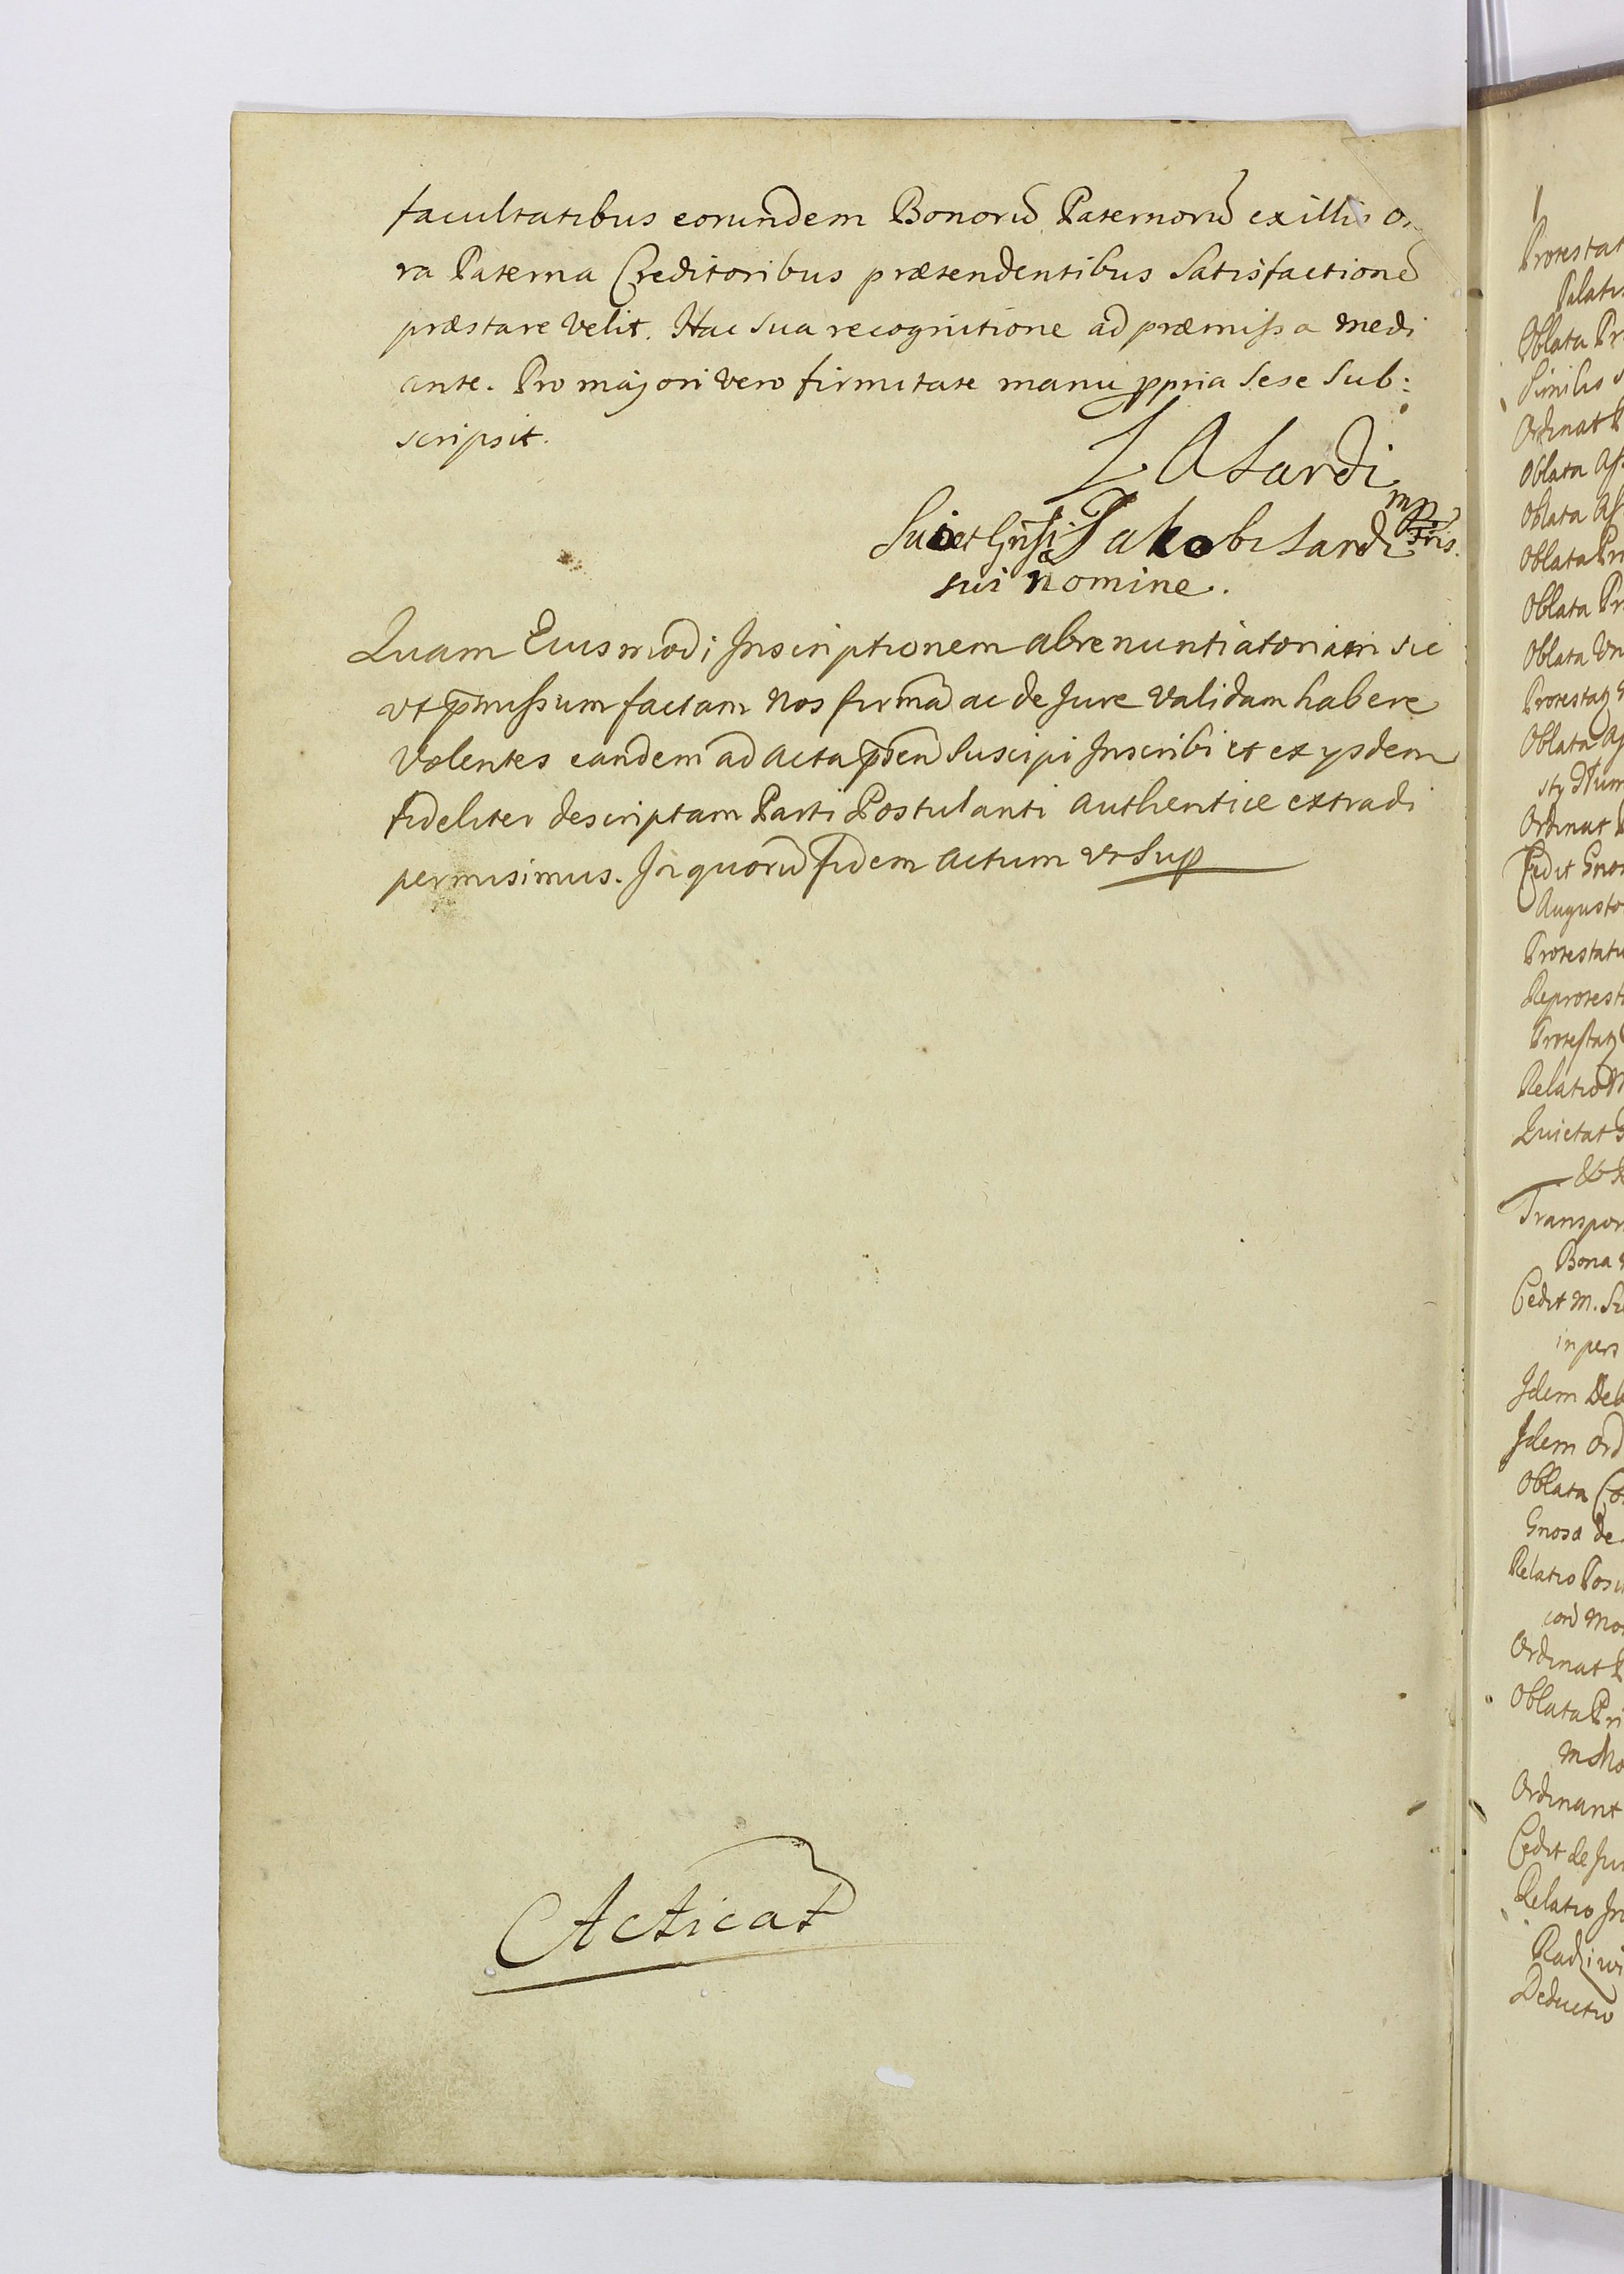 facultatibus eorundem Bonorū Paternorū ex illis o
ra Paterna Creditoribus prætendentibus Satisfactionē
præstare Velit. Hac Sua recognitione ad præmissa medi
ante. Pro majori vero firmitate manu ppria Sese Sub:
scripsit.
Z A Sardi
mpp
Suo et Gnsi Jakobi Sardi Fris.
sui nomine.
Quam Eiusmodi Inscriptionem abrenuntiatoriam sic
vt pmissum factam Nos firmā ac de Jure Validam habere
Volentes eandem ad Acta psen Suscipi Inscribi et ex ysdem
fideliter descriptam Parti Postulanti Authentice extradi
permisimus. In quorū fidem Actum Vt Sup
Acticat
Protestat
Palati
Oblata Pr
Similis
Ordinat
Oblata
Oblata
Oblata Pr
Oblata Pr
Oblata
Protestat
Oblata
Ordinat
Cedit
Augusto
Protestat
Reprotest
Protestat
Relatio
Quietat
Transpor
Bona
Cedit M.
in pers
Idem Deb
Idem Ord
Oblata
Gnosa de
Relatio
Ordinat
Oblata Pri
Ordinant
Cedit de Jur
Relatio
Radziwi
Deductio